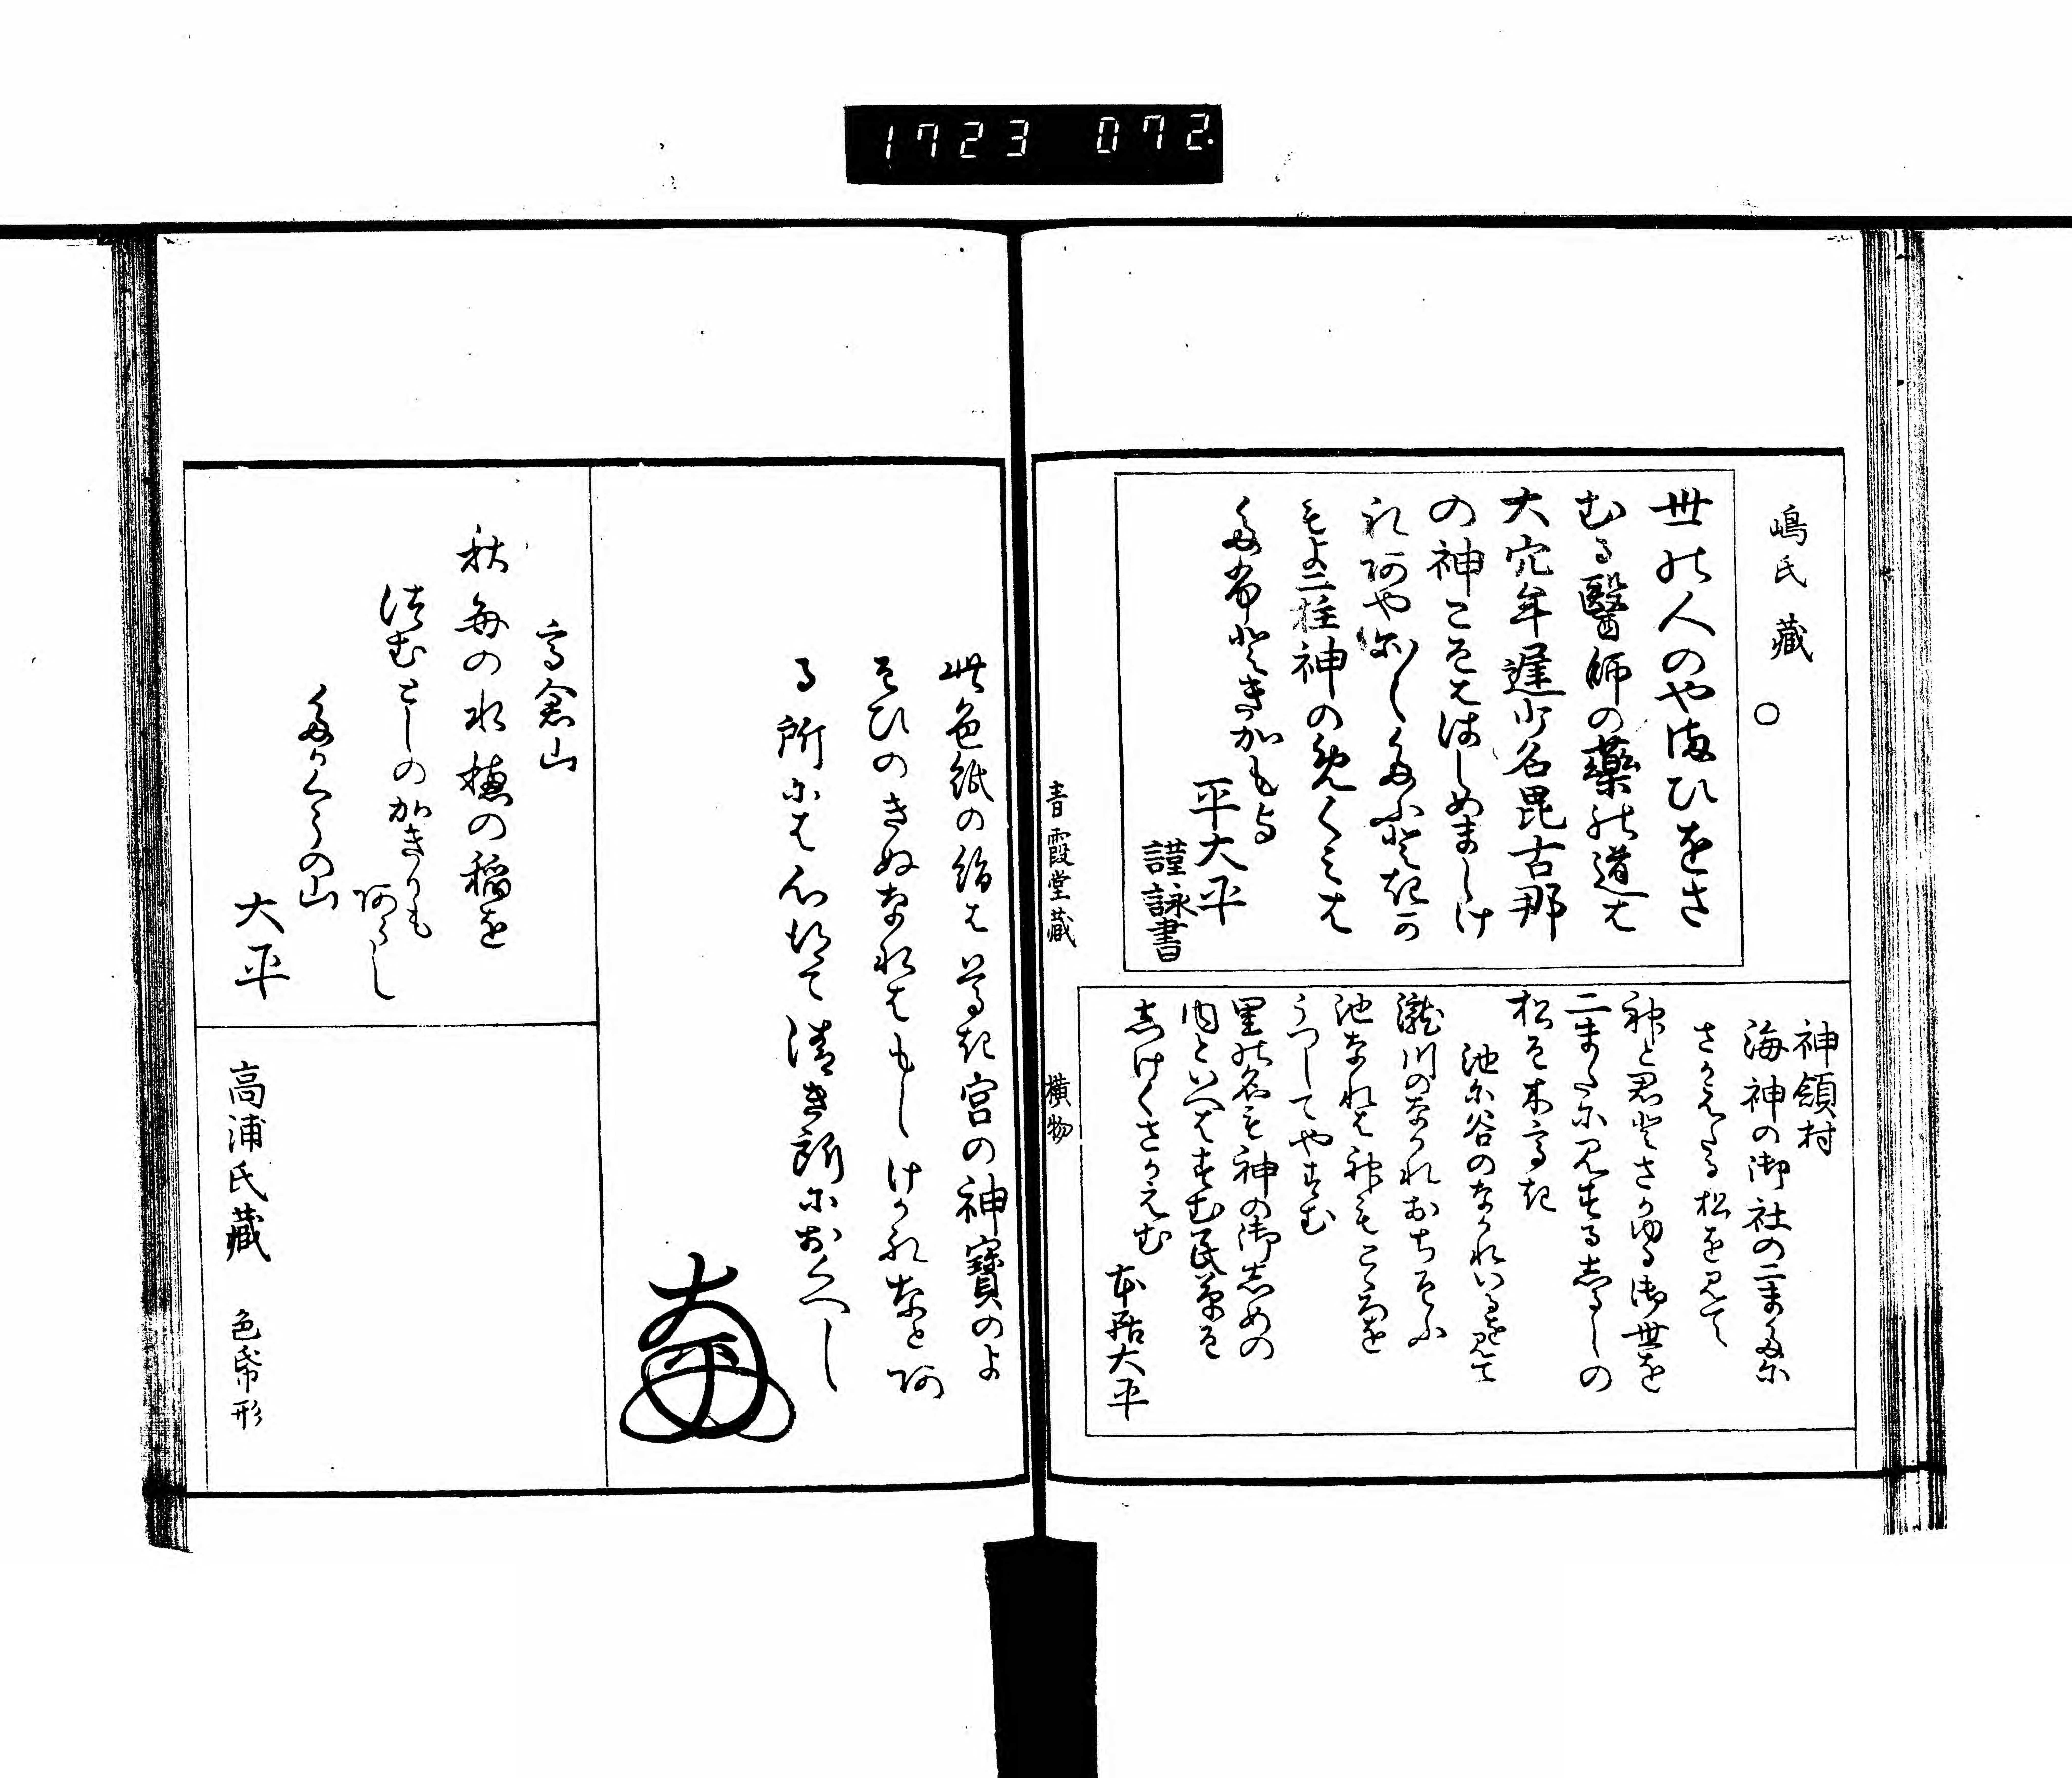 1723 072
嶋氏藏 ○
世の人のやまひをさ
むる醫師の藥の道は
大穴牟遅少名毘古那
の神こそははしめましけ
れあやにくたふときか
もよ二柱神のめくみは
たふときかもよ
平大平
謹詠書
神領村
海神の御社の二またに
さかえたる松を見て
神と君とさかゆる御世を
二またに見するしるしの
松そ木高き
池尓谷のなかれいるを見て
瀧川のなかれおちそふ
池なれは神もこゝろを
うつしてやすむ
里の名も神の御しめの
内といへはすむ民草そ
しけくさかえむ
本居大平
青霞堂藏
横物
此色紙の絹は尊き宮の神寶のよ
そひのきぬなれはもしけかれなとあ
る所には心して清き所におくへし
高倉山
秋毎の水穂の稲を
つむとしのかきりも
あらし
たかくらの山
大平
高浦氏藏
色帋形